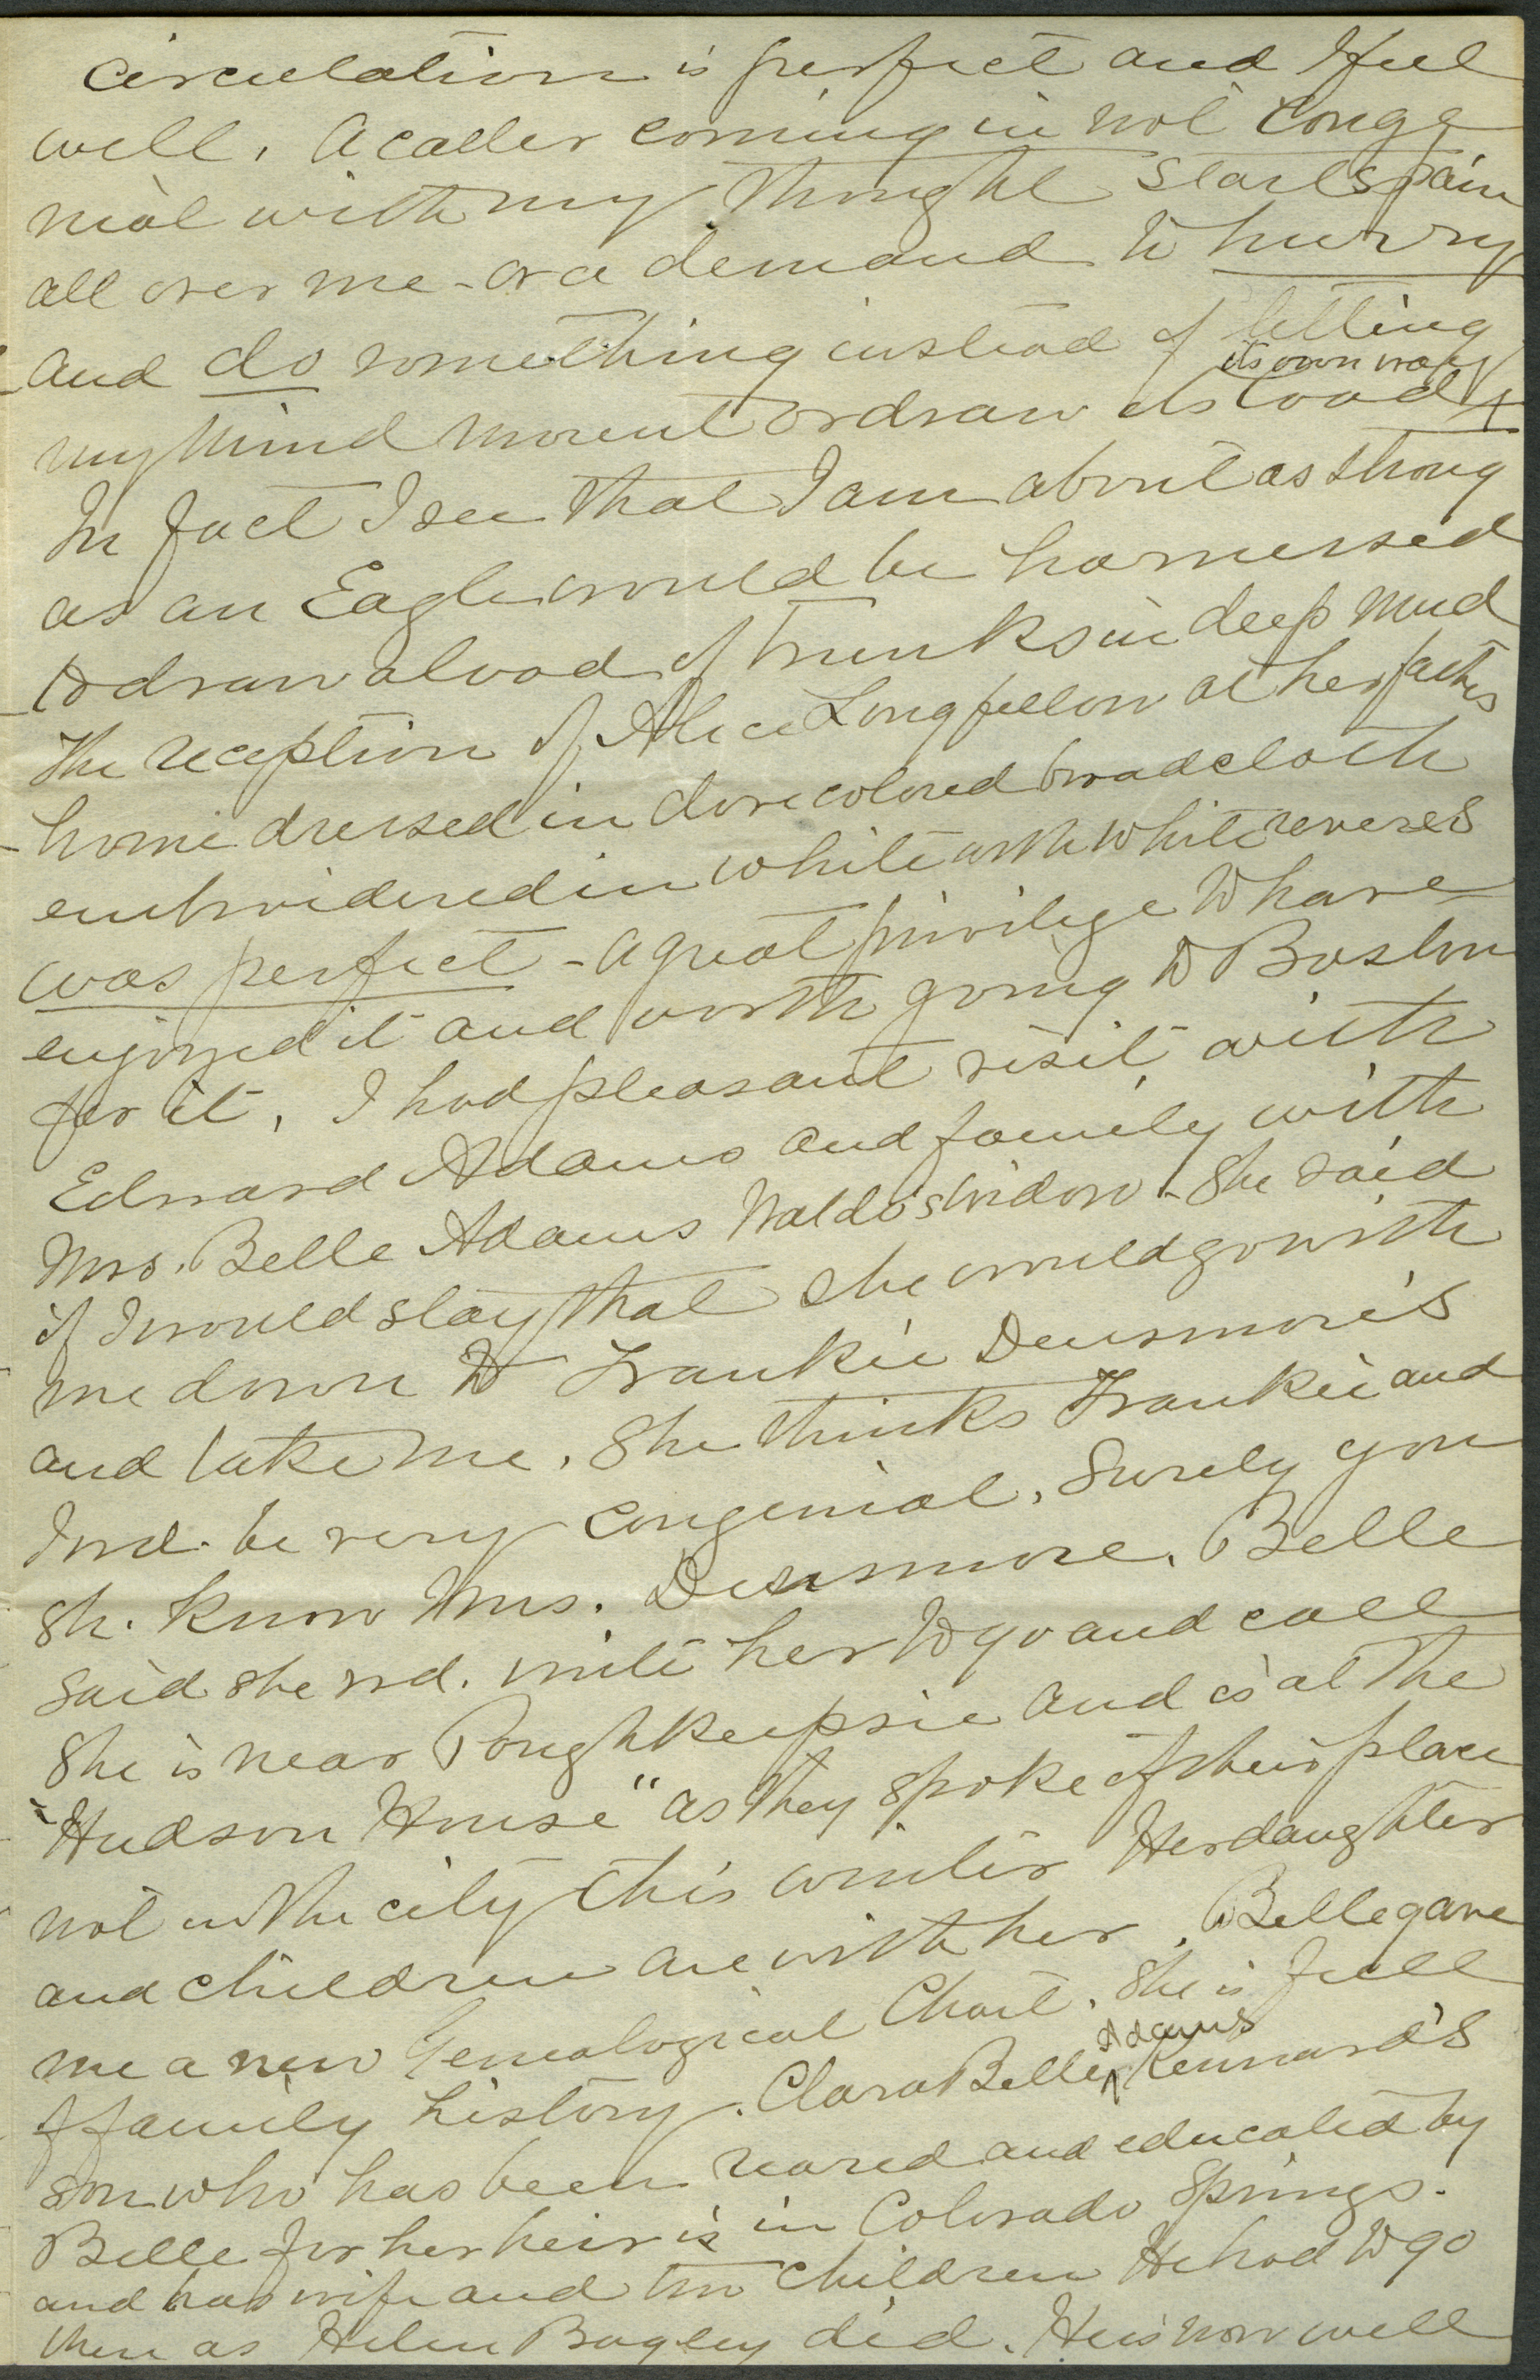 circulation is perfect and I feel
well. A caller coming in not conge
nial with my thought starts pain
all over me - or a demand to hurry
and do something instead of letting
its own way
my mind mount or draw its load
In fact I see that I am about as strong
as an Eagle would be harnessed
to draw a load of trunks in deep mud
The reception of Alice Longfellow at her fathers
home dressed in dove colored broadcloth
embroidered in white with white reveres
was perfect - a great privilege to have
enjoyed it and worth going to Boston
for it. I had pleasant visit with
Edward Adams and family with
Mrs. Belle Adams Waldo's widow. She said
if I would stay that she would go with
me down to Frankie Densmore's
and take me. She thinks Frankie and
I wd. be very congenial. Surely you
sh. know Mrs. Densmore. Belle
said she wd. write her to go and call
She is near Poughkeepsie and is at the
"Hudson House" as they spoke of their place
not in the city this winter Her daughter
and children are with her. Belle gave
me a new Genealogical Chart. She is full
Adams
of family history. Clara Belle Kennard's
son who has been reared and educated by
Belle for her heir is in Colorado Springs.
and has wife and two children He had to go
there as Helen Bagley did. He is now well